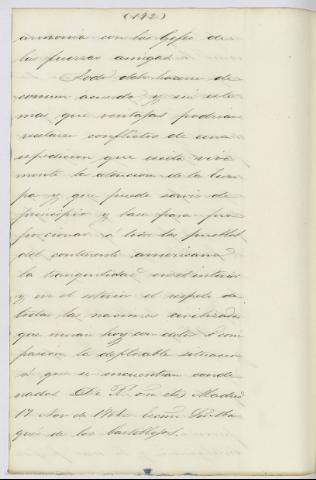 (142)
armonia con los Gefes de
las fuerzas amigas.
Todo debe hacerse de
comun acuerdo y sin este
mas que ventajas podrian
resultar conflictos de una
espedicion que escita viva
mente la atencion de la Euro
pa y que puede servir de
principio y base para pro
porcionar á todos los pueblos
del continente americano
la tranquilidad en el interior
y en el esterior el respeto de
todas las naciones civilizadas
que miran hoy con dolor y com
pasion la deplorable situacion
á que se encuentran conde
nados. De R. orn etc Madrid
17 Nov de 1861. Mar
qués de los Castillejos.